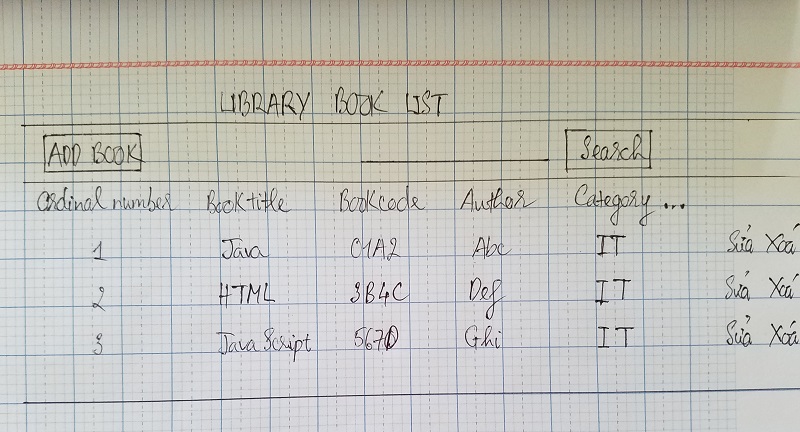 LIBRARY BOOK LIST
ADD BOOK Search
Ordinal number Book title Bookcode Author Category...
1 Java 01A2 Abc IT Sửa Xoá
2 HTML 3B4C Def IT Sửa Xoá
3 JavaScript 567D Ghi IT Sửa Xoá